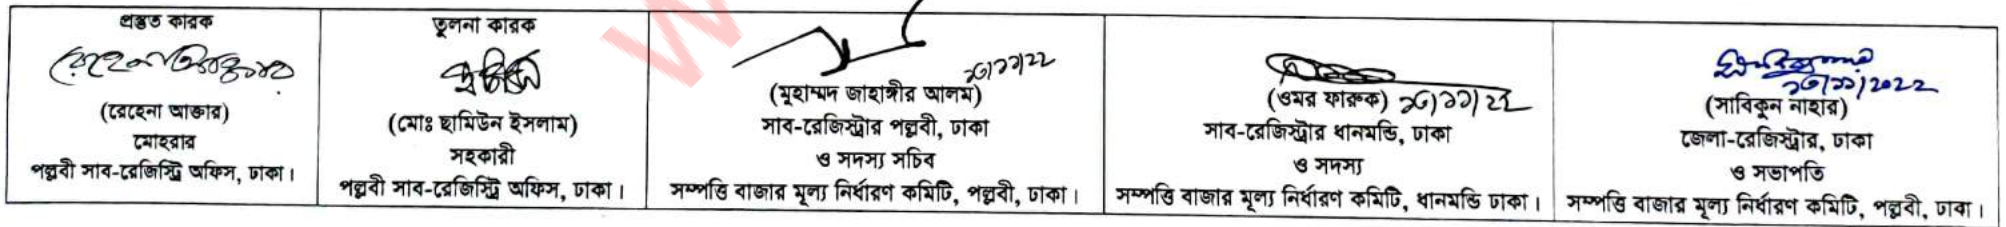 প্রস্তুত কারক
(রেহেনা আক্তার)
মোহরার
পল্লবী সাব-রেজিস্ট্রি অফিস, ঢাকা।
তুলনা কারক
(মোঃ ছামিউন ইসলাম)
সহকারী
পল্লবী সাব-রেজিস্ট্রি অফিস, ঢাকা।
(মুহাম্মদ জাহাঙ্গীর আলম)
সাব-রেজিস্ট্রার পল্লবী, ঢাকা
ও সদস্য সচিব
সম্পত্তি বাজার মূল্য নির্ধারণ কমিটি, পল্লবী, ঢাকা।
(ওমর ফারুক)
সাব-রেজিস্ট্রার ধানমন্ডি, ঢাকা
ও সদস্য
সম্পত্তি বাজার মূল্য নির্ধারণ কমিটি, ধানমন্ডি ঢাকা।
(সাবিকুন নাহার)
জেলা-রেজিস্ট্রার, ঢাকা
ও সভাপতি
সম্পত্তি বাজার মূল্য নির্ধারণ কমিটি, পল্লবী, ঢাকা।